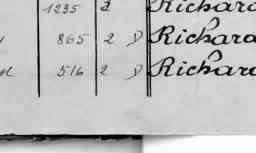 1235 2 Richard
865 2 D Richard
516 2 D Richard